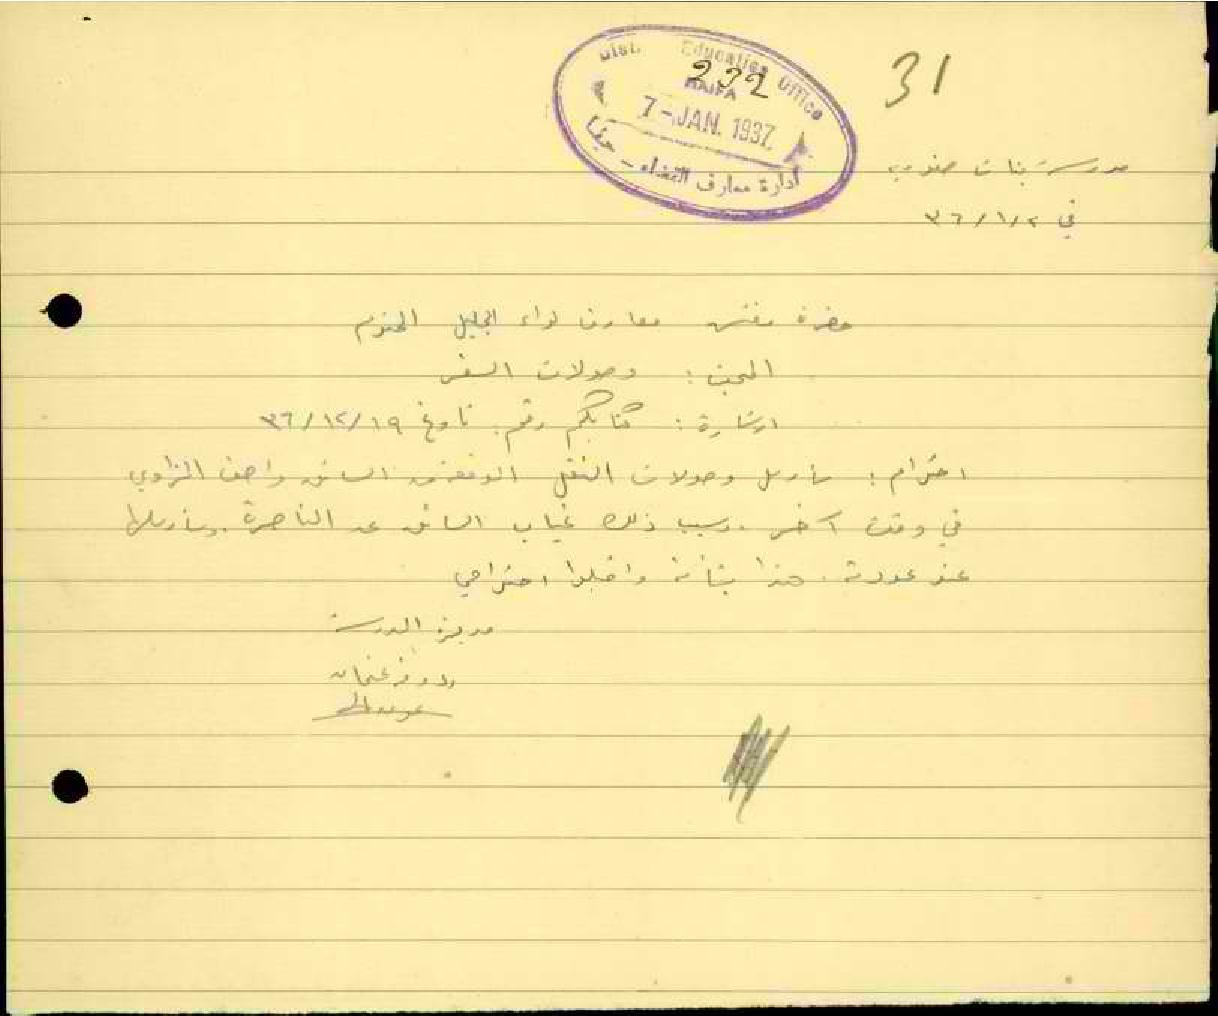 31
Dist. Education Office
232
HAIFA
7 - JAN. 1937
ادارة معارف القضاء - حيفا
مدرسة بنات صفورية
في ٣٦/١/٢
حضرة مفتش معارف لواء الجليل المحترم
المبحث : وصولات السفر
اشارة : كتابكم رقم . تاريخ ٣٦/١٢/١٩
احترام : سأرسل وصولات النقل الموقعة من السائق واصف الزاوي
في وقت آخر . وسبب ذلك غياب السائق عن الناصرة . وسأرسلها
عند عودته . هذا بيانه واقبلوا احترامي
مديرة المدرسة
عثمان